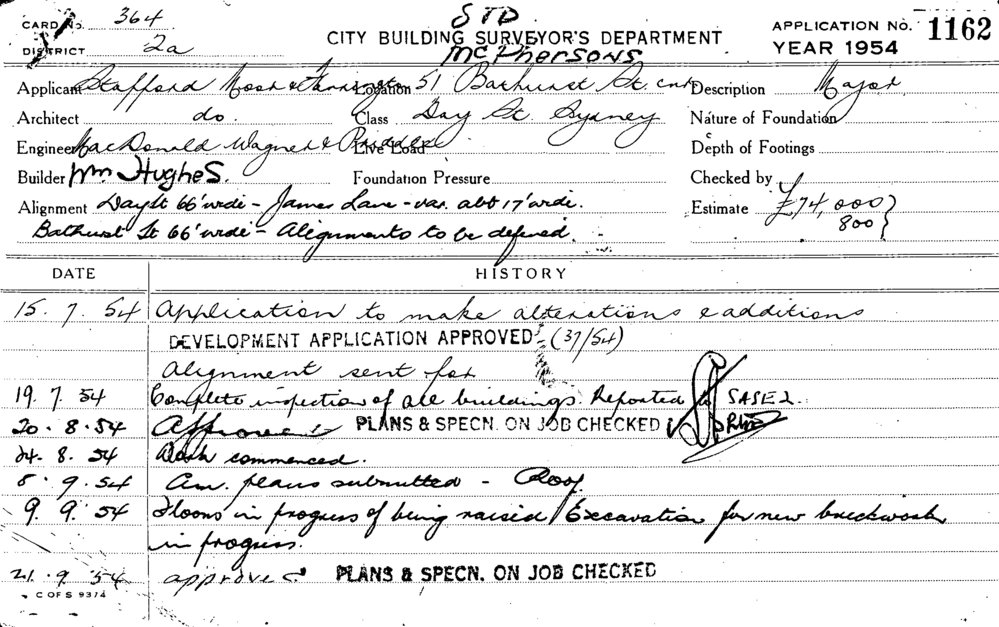 CARD No. 364
STD
CITY BUILDING SURVEYOR'S DEPARTMENT
McPhersons
APPLICATION No. 1162
YEAR 1954
DISTRICT 2a
Applicant Stafford Moor & Location 51 Bathurst St. cnr Description Major
Architect do. Class Day St. Sydney Nature of Foundation
Engineer MacDonald Wagner & Priddle Live Load Depth of Footings
Builder Wm Hughes. Foundation Pressure Checked by
Alignment Day St 66' wide - James Lane - var. abt 17' wide. Estimate £74,000
Bathurst St 66' wide - Alignments to be defined. 800
DATE HISTORY
15. 7. 54 Application to make alterations & additions
DEVELOPMENT APPLICATION APPROVED (37/54)
Alignment sent for
19. 7. 54 Complete inspection of all buildings. Reported to SASE2.
20. 8. 54 Approved PLANS & SPECN. ON JOB CHECKED
24. 8. 54 Work commenced.
8. 9. 54 Am. plans submitted - Roof
9. 9. 54 Floors in progress of being raised / Excavation for new brickwork
in progress.
21. 9. 54 approved PLANS & SPECN. ON JOB CHECKED
C OF S 9374